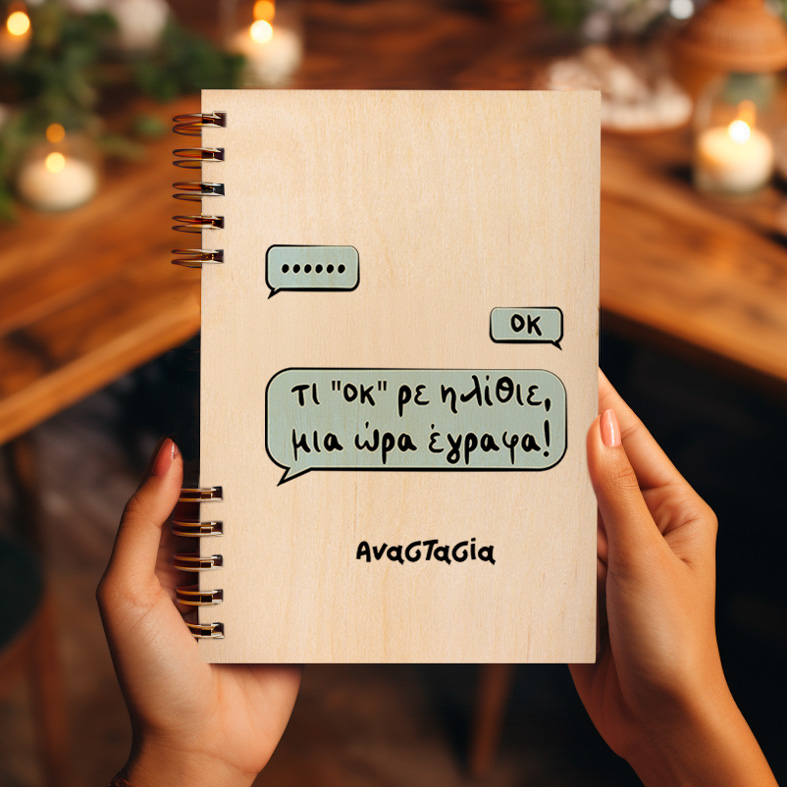 ......
οκ
τι "οκ" ρε ηλίθιε,
μια ώρα έγραφα!
Αναστασία